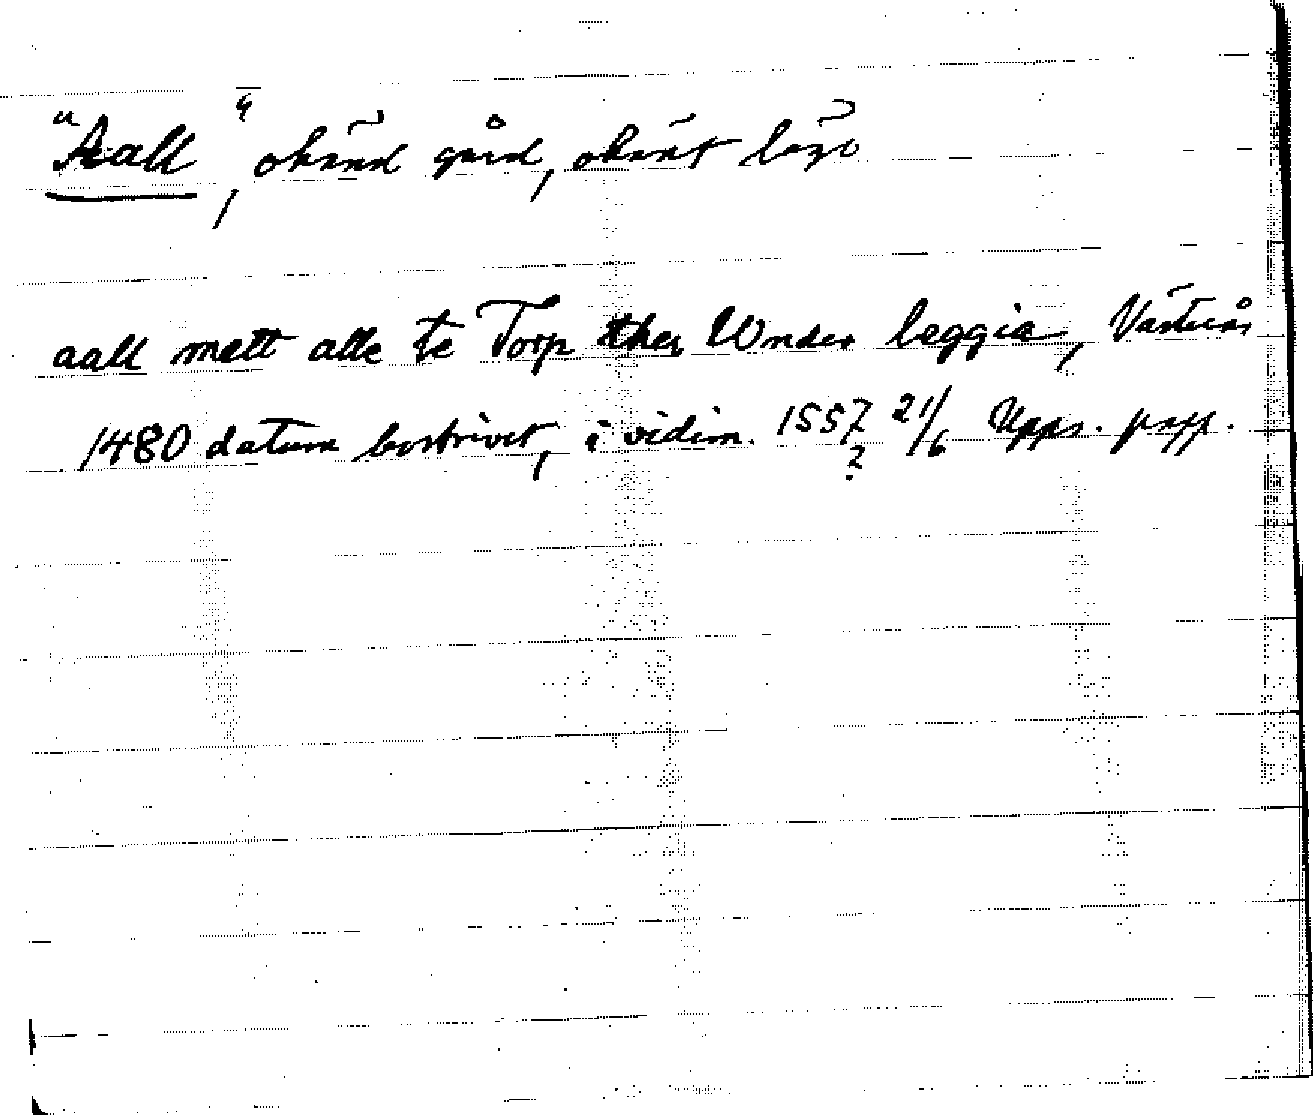 "Aall", okänd gård, okänt läge
aall mett alle te Torp ther Wnder leggia, Västerås
1480 datum bortrivet, i vidim. 1557 21/6 Upps. papp.
?